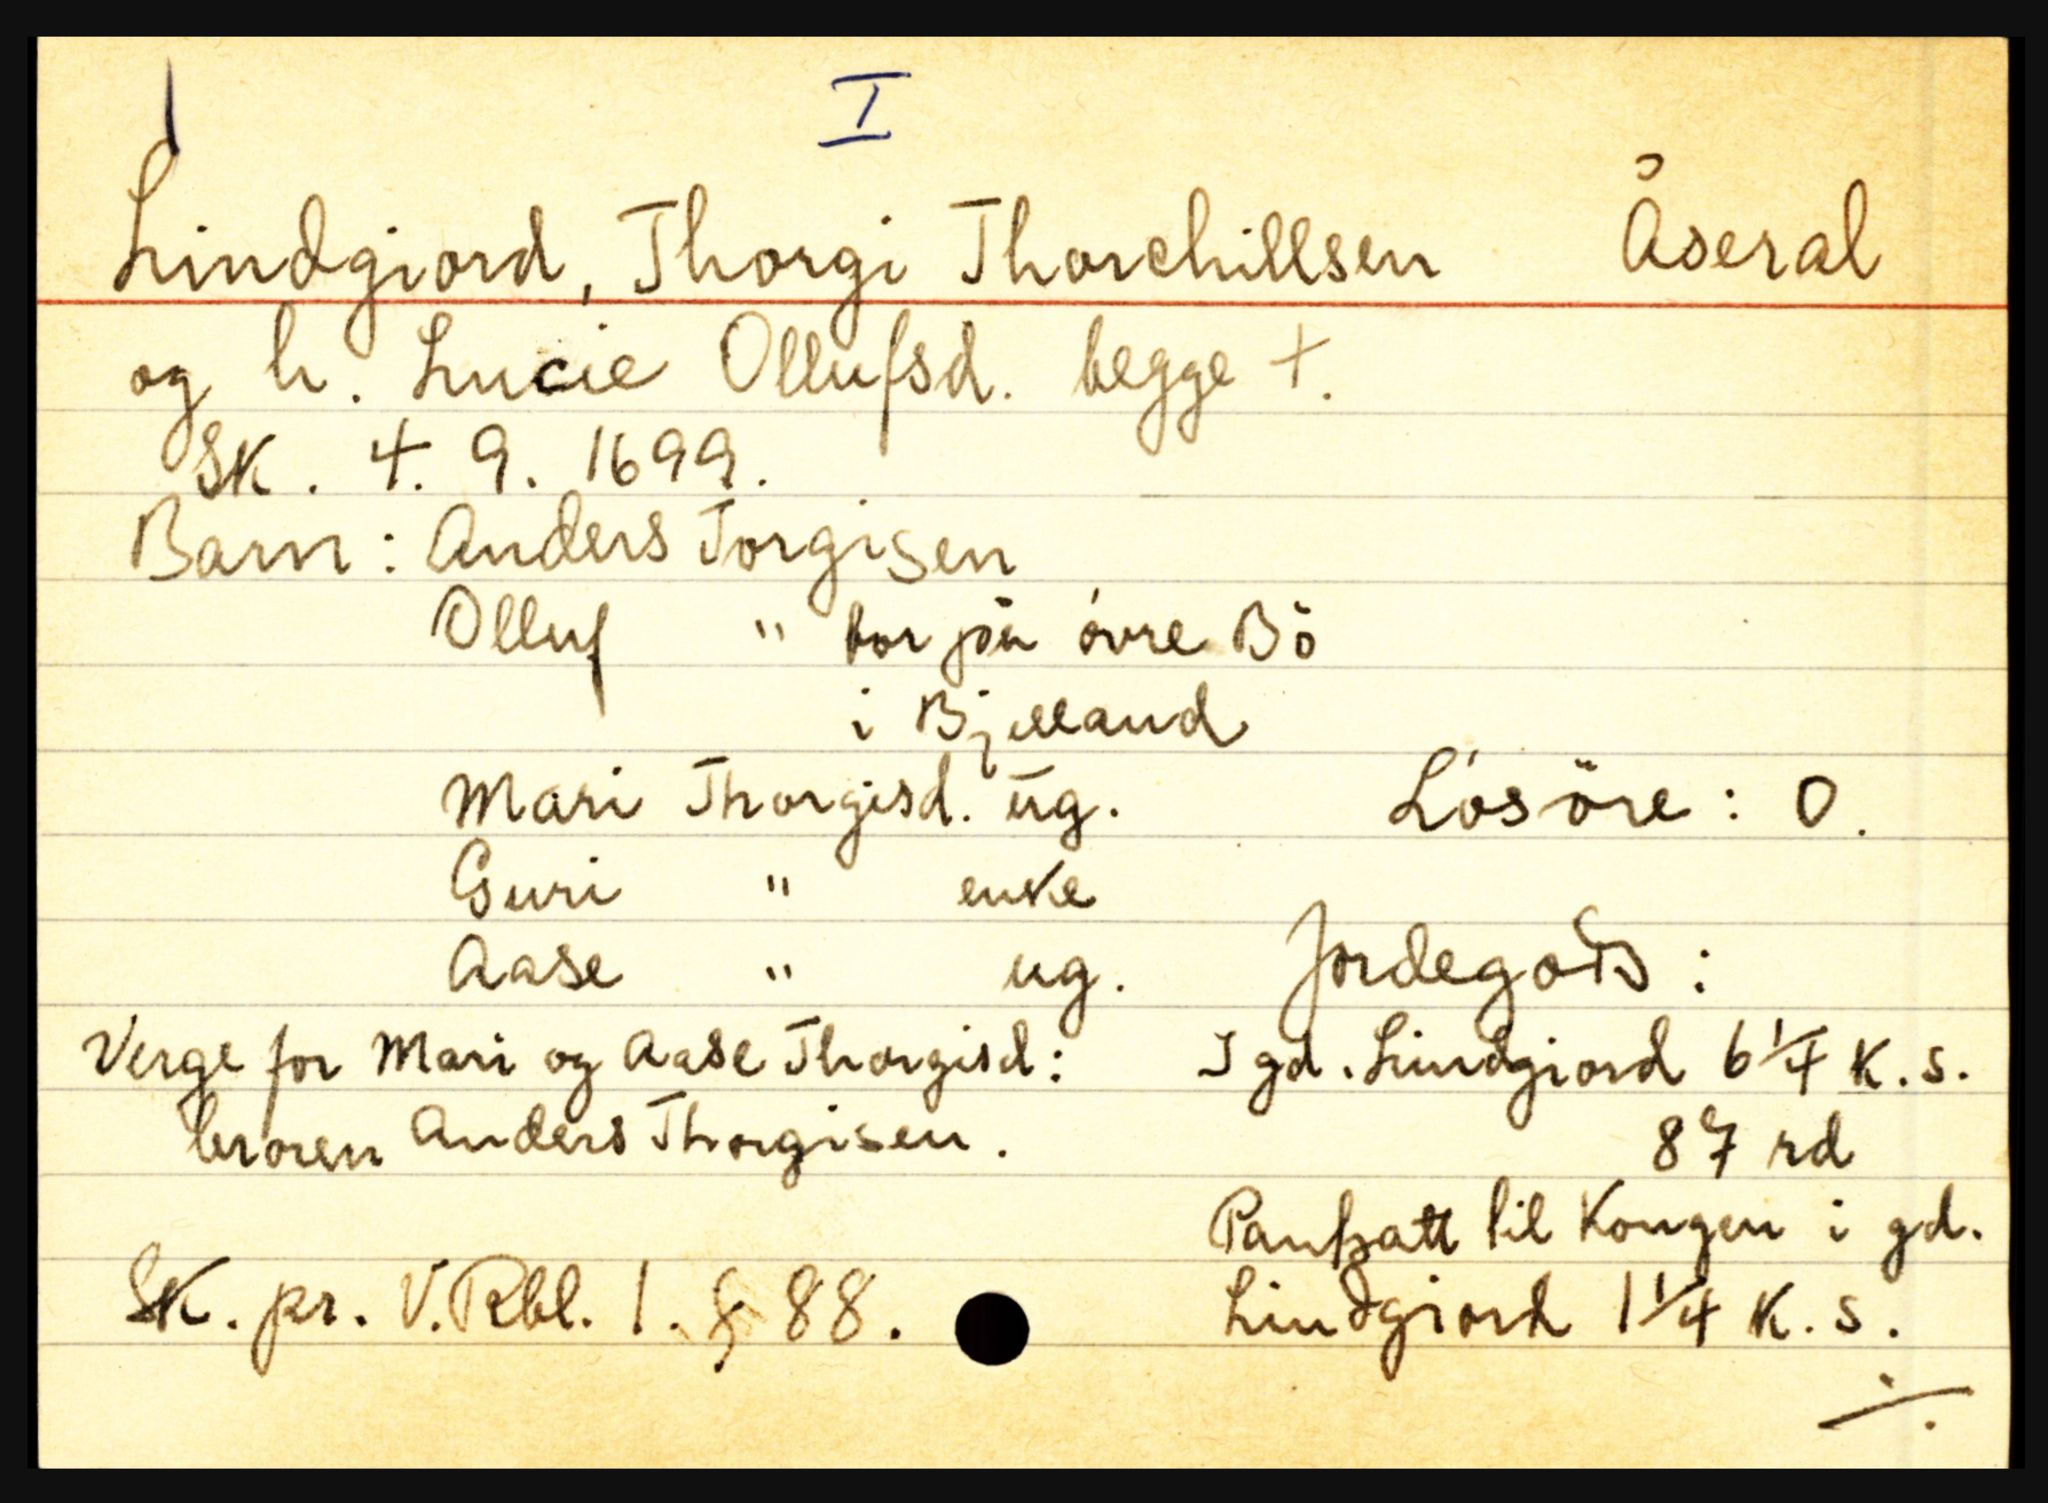 I
Lindgiord, Thorgi Thorchillsen Åseral
og h. Lucie Ollufsd. begge +.
SK. 4. 9. 1699.
Barn: Anders Torgisen
Olluf " bor på övre Bö
i Bjelland
Mari Thorgisd. ug.
Lösöre: 0.
Guri " enke
Aase " ug.
Jordegods:
Verge for Mari og Aase Thorgisd:
broren Anders Thorgisen.
I gd. Lindgiord 6 1/4 K.s.
87 rd
Pantsatt til Kongen i gd.
Lindgiord 1 1/4 K.s.
SK. pr. V.Rbl. 1. § 88.